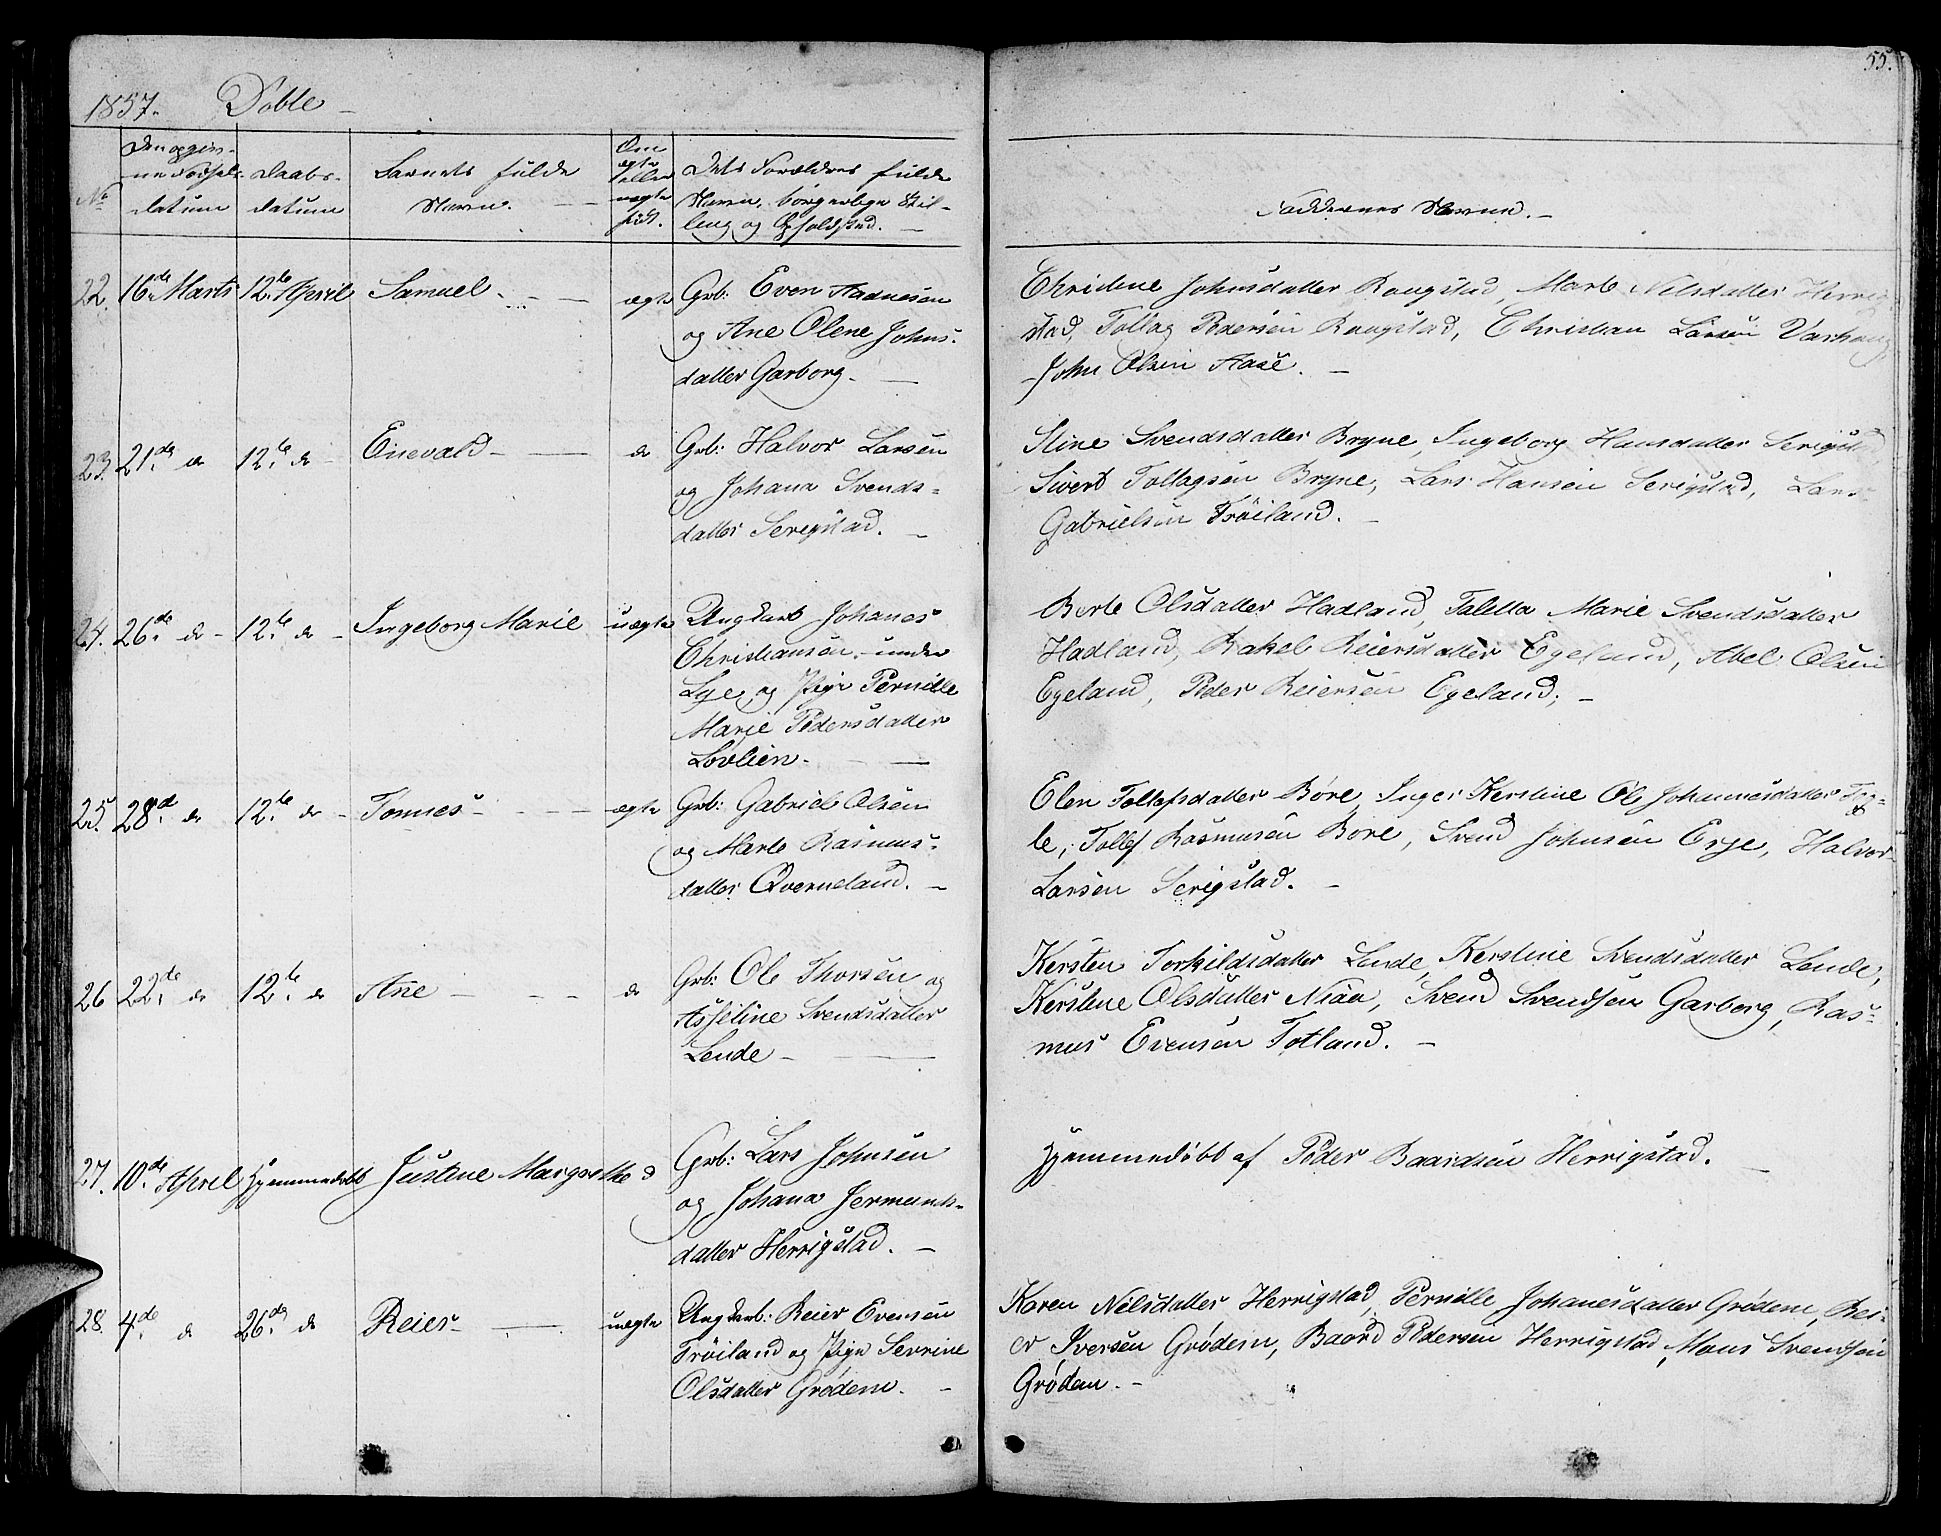 55.
1857. Døbte
No
Den opgivne Fødsels-datum
Daabs-datum
Barnets fulde Navn.
Om ægte eller uægte født.
Dets Forældres fulde Navn, borgerlige Stilling og Opholdsted.
Faddernes Navne.
22. 16de Marts 12te April Samuel ægte Grb: Even Aadnesen
og Ane Olene Johns-
datter Garborg.
Christine Johnsdatter Raugstad, Marte Nilsdatter Herrig-
stad, Tollag Pedersen Raugstad, Christian Larsen Varhaug,
John Olsen Aase.
23. 21de d 12te d Enevald d Grb: Halvor Larsen
og Johana Svends-
datter Serigstad.
Stine Svendsdatter Bryne, Ingeborg Hansdatter Serigstad,
Sivert Tollagsen Bryne, Lars Hansen Serigstad, Lars
Gabrielsen Frøiland.
24. 26de d 12te d Ingeborg Marie uægte Ungkarl Johanes
Christiansen, under
Lye, og Pige Pernille
Marie Pedersdatter
Lovlien.
Berte Olsdatter Hadland, Taletta Marie Svendsdatter
Hadland, Rakel Reiersdatter Egeland, Abel Olsen
Egeland, Peder Reiersen Egeland;
25. 28d d 12te d Tønnes ægte Grb: Gabriel Olsen
og Marte Rasmus-
datter Qverneland.
Elen Tollefsdatter Børe, Inger Kerstine Ol Johannesdatter
le, Tollef Rasmusen Børe, Svend Johnsen Erge, Halvor
Larsen Serigstad.
26 22de d 12te d Ane d Grb: Ole Thorsen og
Asseline Svendsdatter
Lende
Kersten Torkildsdatter Lende, Kerstine Svendsdatter Lende,
Kerstine Olsdatter Niaa, Svend Svendsen Garborg, Ras-
mus Evensen Totland.
27. 10de April Hjemmedøbt Justine Margrethe d Grb: Lars Johnsen
og Johana Jermunds-
datter Herrigstad.
Hjemmedøbt af Peder Baardsen Herrigstad.
28. 4de d 26de d Reier uægte Ungkarl: Reier Evensen
Frøiland og Pige Serrine
Olsdatter Grødem.
Karen Nilsdatter Herrigstad, Pernille Johanesdatter Grødem, Rei-
er Iversen Grødem, Baard Pedersen Herrigstad, Mons Svendsen
Grødem.